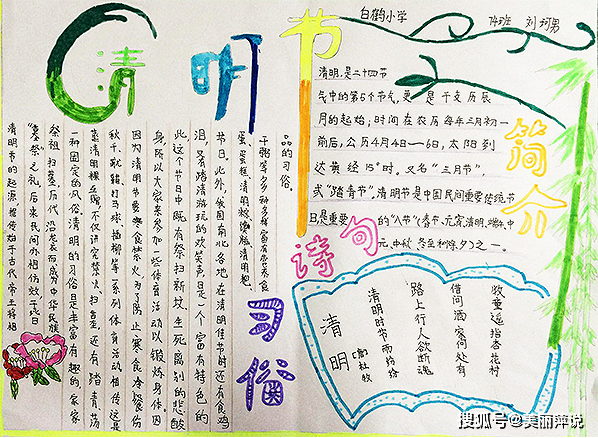 清明节
白鹤小学 14班 刘珂男
简介
清明,是二十四节
气中的第5个节气,更是干支历辰
月的起始;时间在农历每年三月初一
前后,公历4月4日—6日,太阳到
达黄经15°时。又名“三月节”,
或“踏青节”,清明节是中国民间重要传统节
日,是重要的“八节”(春节、元宵、清明、端午、中
元、中秋、冬至和除夕)之一。
诗句
清明
(唐)杜牧
清明时节雨纷纷
路上行人欲断魂
借问酒家何处有
牧童遥指杏花村
习俗
清明节的起源,据传始于古代帝王将相
“墓祭”之礼,后来民间亦相仿效,于此日
祭祖扫墓,历代沿袭而成为中华民族
一种固定的风俗。清明的习俗是丰富有趣的,家家
蒸清明粿互赠,不仅讲究禁火、扫墓,还有踏青、荡
秋千、蹴鞠、打马球、插柳等一系列体育活动。相传这是
因为清明节要寒食禁火,为了防止寒食冷餐伤
身,所以大家来参加一些体育活动,以锻炼身体。因
此,这个节日中既有祭扫新坟生死离别的悲酸
泪,又有踏清游玩的欢笑声,是一个富有特色的
节日。此外,我国有北各地在清明佳节时还有食鸡
蛋、蛋糕、清明粽、清明粑、
干粥等多种多样富有营养食
品的习俗。
搜狐号@美丽萍说